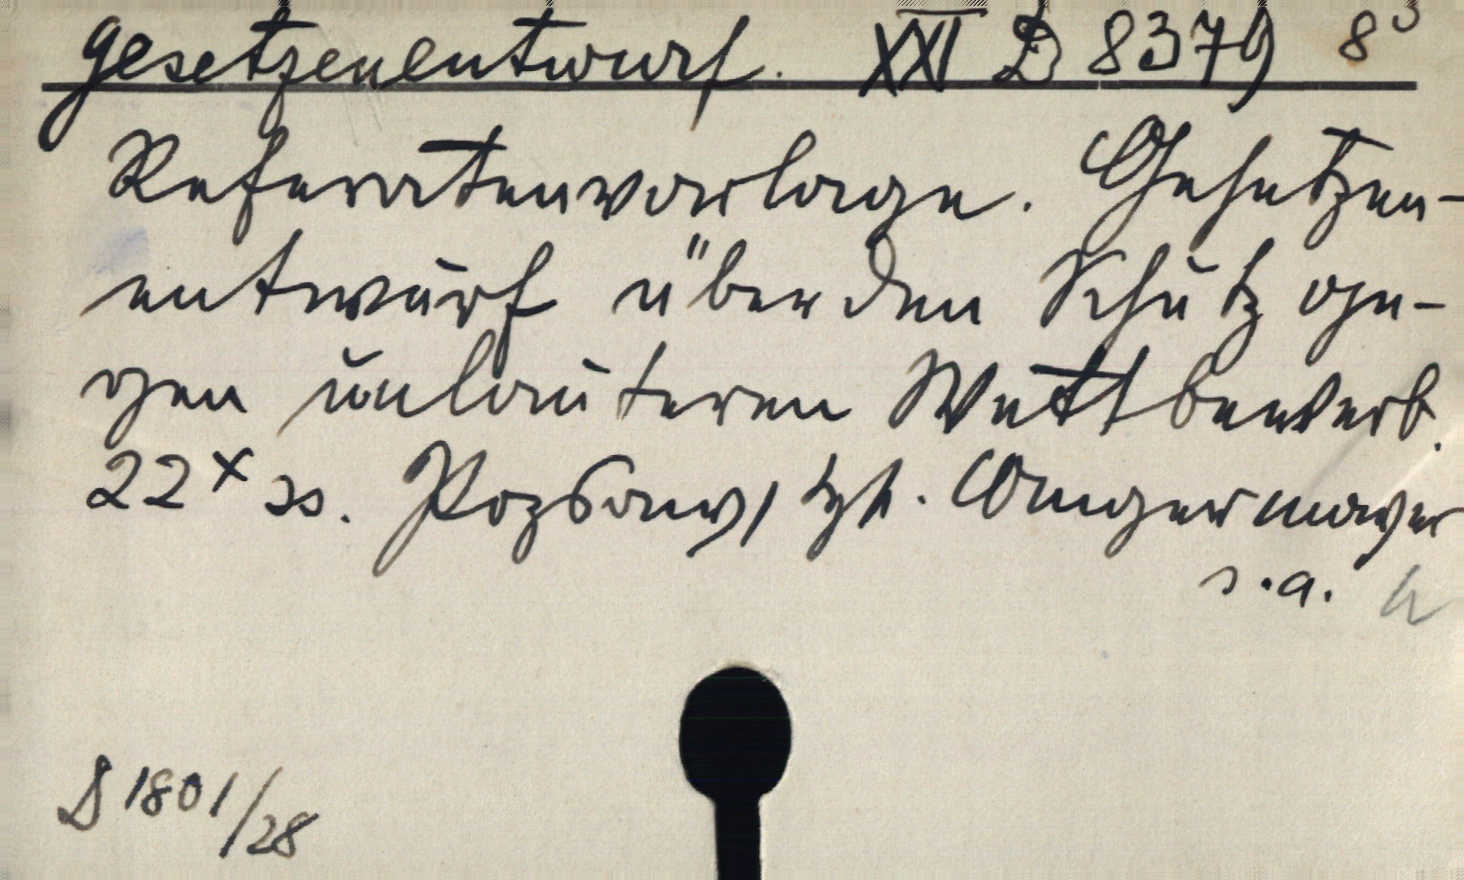 Gesetzenentwurf. XXI D 8379 8°
Referatenvorlage. Gesetzen-
entwurf über den Schutz ge-
gen unlauteren Wettbewerb.
22 x ss. Pozsony, typ. Angermayer
s.a.
D 1801/28